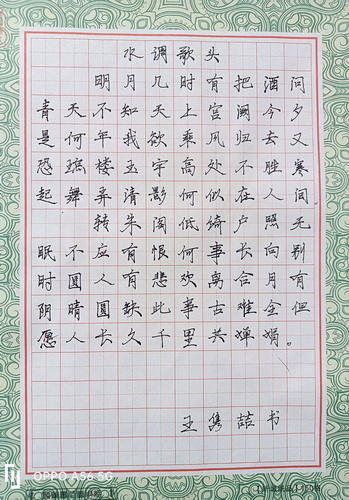 水调歌头
明月几时有把酒问
青天不知天上宫阙今夕
是何年我欲乘风归去又
恐琼楼玉宇高处不胜寒
起舞弄清影何似在人间
转朱阁低绮户照无
眠不应有恨何事长向别
时圆人有悲欢离合月有
阴晴圆缺此事古难全但
愿人长久千里共婵娟。
王隽喆书
OPPO A56 5G